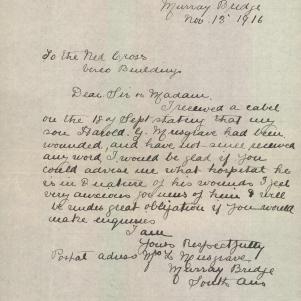 Murray Bridge
Nov. 15 1916
To the Red Cross
Verco Buildings
Dear Sir or Madam.
I received a cabel
on the 18 of Sept stating that my
son Harold. G. Musgrave had been
wounded, and have not since received
any word I would be glad if you
could advise me what hospital he
is in & nature of his wounds I feel
very anxious for news of him & will
be under great obligation if you would
make enquiries
I am
Yours Respectfully
Postal adress Mrs L Musgrave
Murray Bridge
South Aus